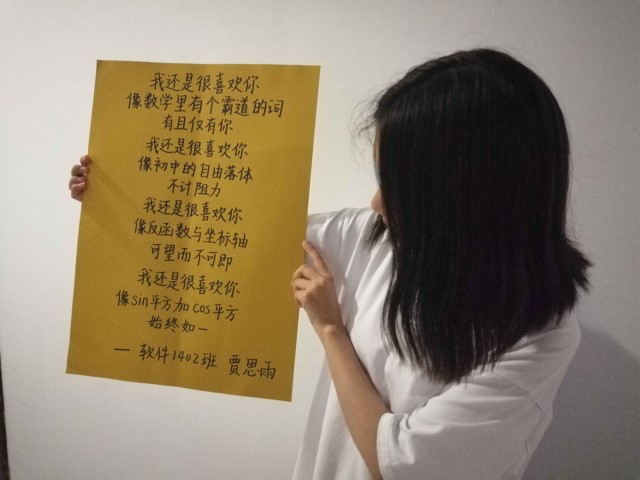 我还是很喜欢你
像数学里有个霸道的词
有且仅有你
我还是很喜欢你
像初中的自由落体
不计阻力
我还是很喜欢你
像反函数与坐标轴
可望而不可即
我还是很喜欢你
像sin平方加cos平方
始终如一
— 软件1402班 贾思雨